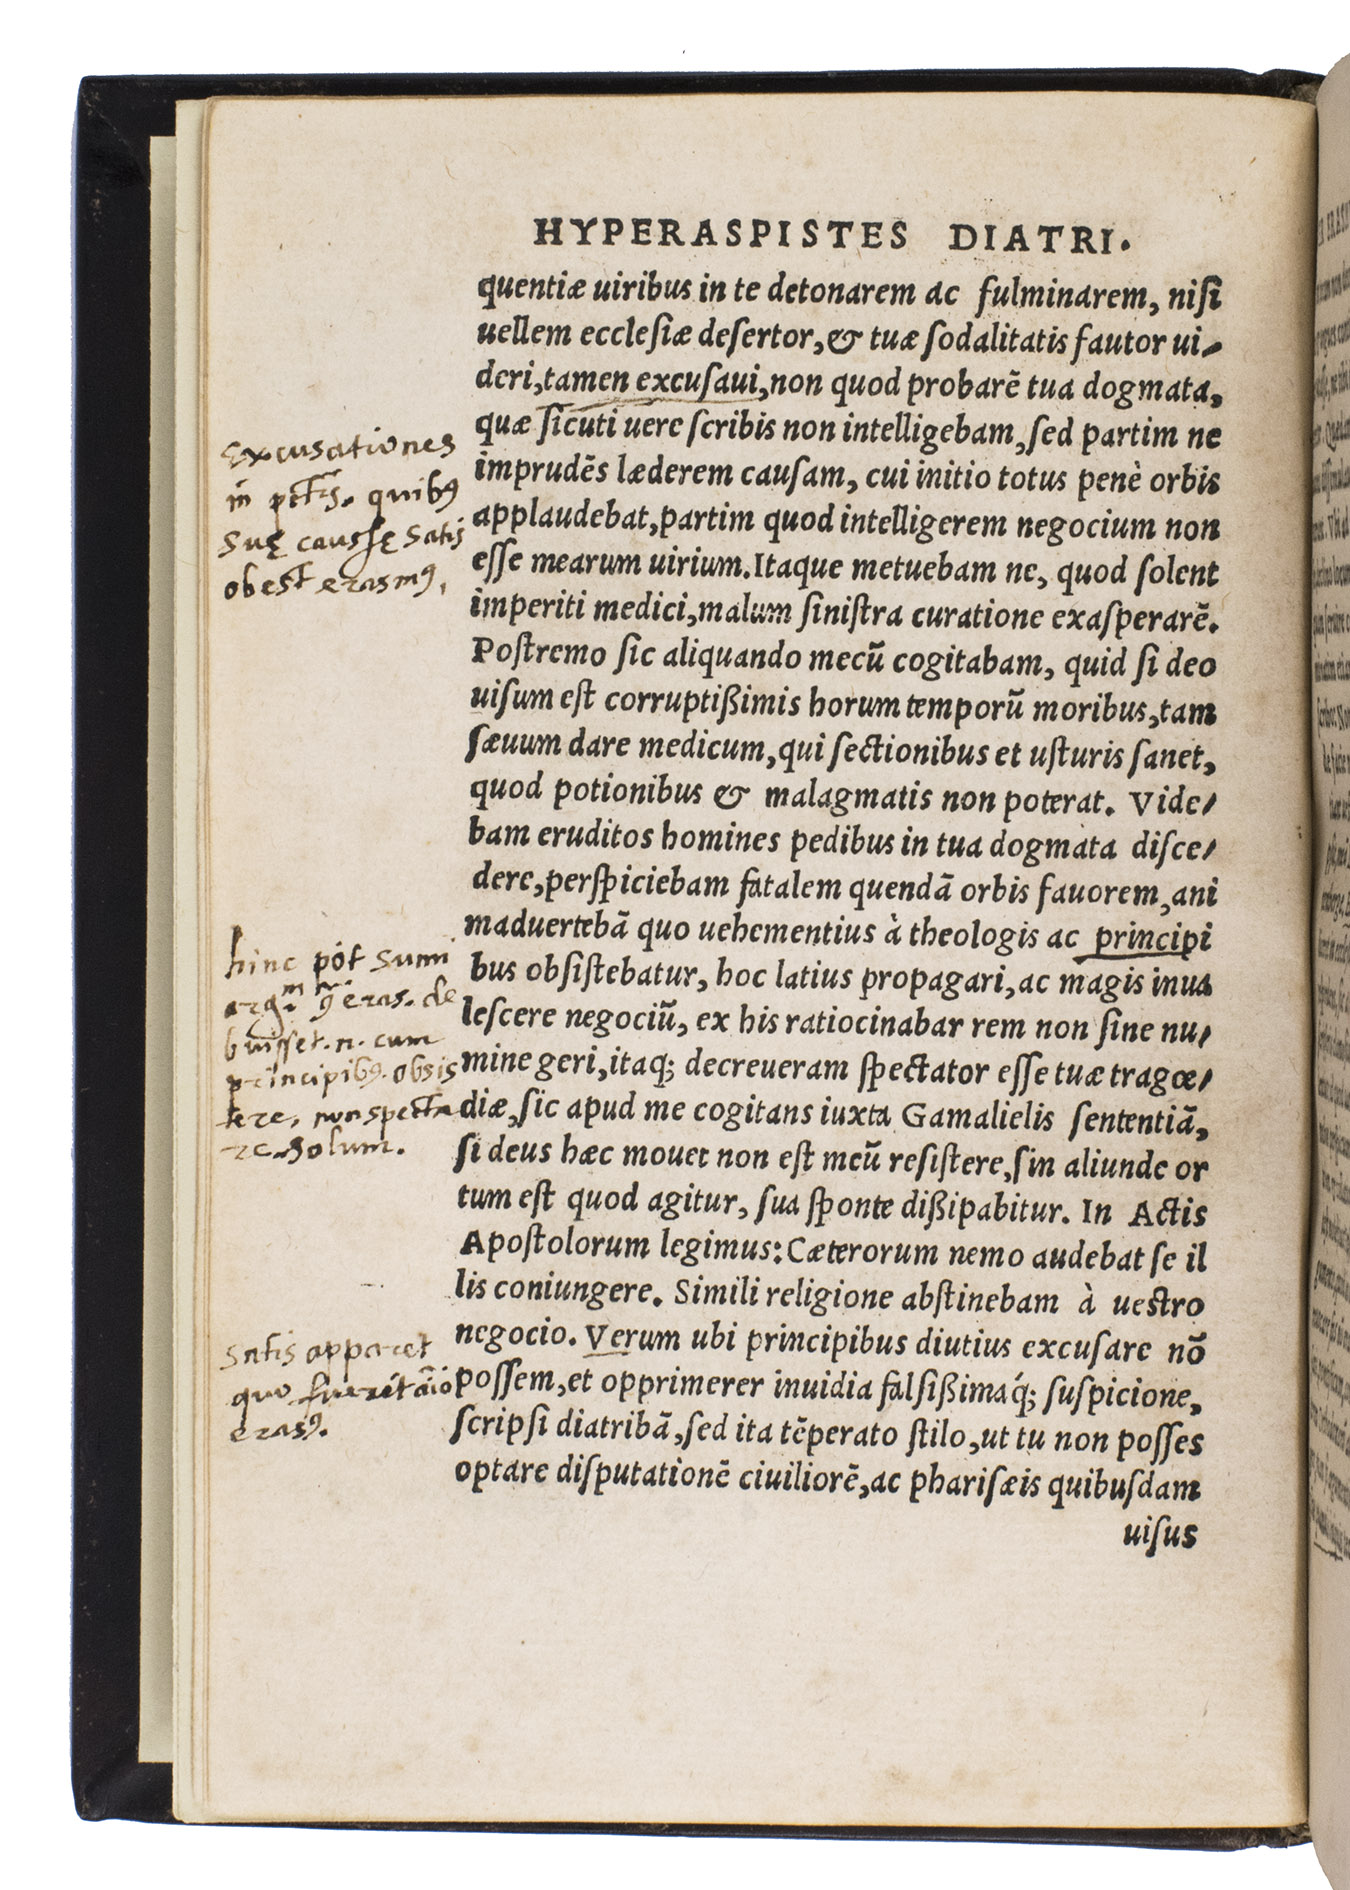 HYPERASPISTES DIATRI.
quentiæ uiribus in te detonarem ac fulminarem, niſi
uellem eccleſiæ deſertor, & tuæ ſodalitatis fautor ui-
deri, tamen excuſaui, non quod probarē tua dogmata,
quæ ſicuti uere ſcribis non intelligebam, ſed partim ne
imprudēs læderem cauſam, cui initio totus penè orbis
applaudebat, partim quod intelligerem negocium non
eſſe mearum uirium. Itaque metuebam ne, quod ſolent
imperiti medici, malum ſiniſtra curatione exaſperarē.
Poſtremo ſic aliquando mecū cogitabam, quid ſi deo
uiſum eſt corruptißimis horum temporū moribus, tam
ſæuum dare medicum, qui ſectionibus et uſturis ſanet,
quod potionibus & malagmatis non poterat. Vide/
bam eruditos homines pedibus in tua dogmata diſce/
dere, perſpiciebam fatalem quendā orbis fauorem, ani
maduertebā quo uehementius à theologis ac principi
bus obſiſtebatur, hoc latius propagari, ac magis inua
leſcere negociū, ex his ratiocinabar rem non ſine nu/
mine geri, itaq; decreueram ſpectator eſſe tuæ tragœ/
diæ, ſic apud me cogitans iuxta Gamalielis ſententiā,
ſi deus hæc mouet non eſt meū reſiſtere, ſin aliunde or
tum eſt quod agitur, ſua ſponte dißipabitur. In Actis
Apoſtolorum legimus: Cæterorum nemo audebat ſe il
lis coniungere. Simili religione abſtinebam à ueſtro
negocio. Verum ubi principibus diutius excuſare nō
poſſem, et opprimerer inuidia falſißimaq́; ſuſpicione,
ſcripſi diatribā, ſed ita tēperato ſtilo, ut tu non poſſes
optare diſputationē ciuiliorē, ac phariſæis quibuſdam
uiſus
Excusationes
quibꝰ
Suę caussę satis
obest erasmꝰ.
hinc pōt sumi
eras. de
buisset .n. cum
principibꝰ obsis
tere, non specta
re solum.
Satis apparet
quo fuerit aīo
erasꝰ.